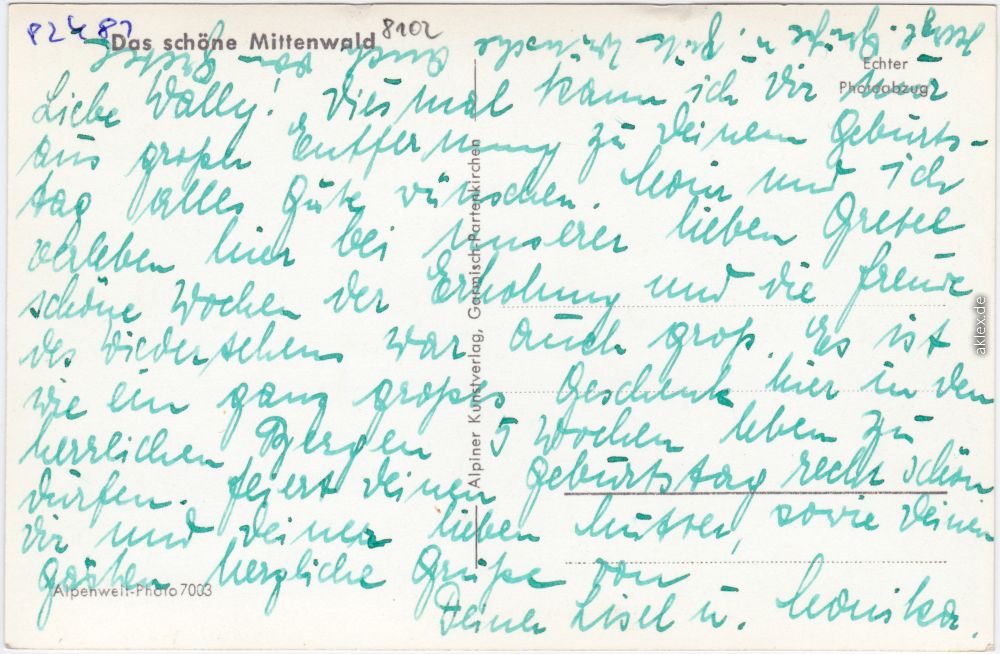 82487
8102
Das schöne Mittenwald
Echter
Photoabzug
Liebe Wally! Diesmal kann ich Dir nur
aus großer Entfernung zu Deinem Geburts-
tag alles Gute wünschen. Moni und ich
verleben hier bei unserer lieben Gretel
schöne Wochen der Erholung und die Freude
des Wiedersehens war auch groß. Es ist
wie ein ganz großes Geschenk hier in den
herrlichen Bergen 5 Wochen leben zu
dürfen. Feiert Deinen Geburtstag recht schön
Dir und Deiner lieben Mutter, sowie Deinen
Gästen herzliche Grüße von
Deinen Lisel u. Monika.
Alpiner Kunstverlag, Garmisch-Partenkirchen
Alpenwelt-Photo 7003
aklex.de